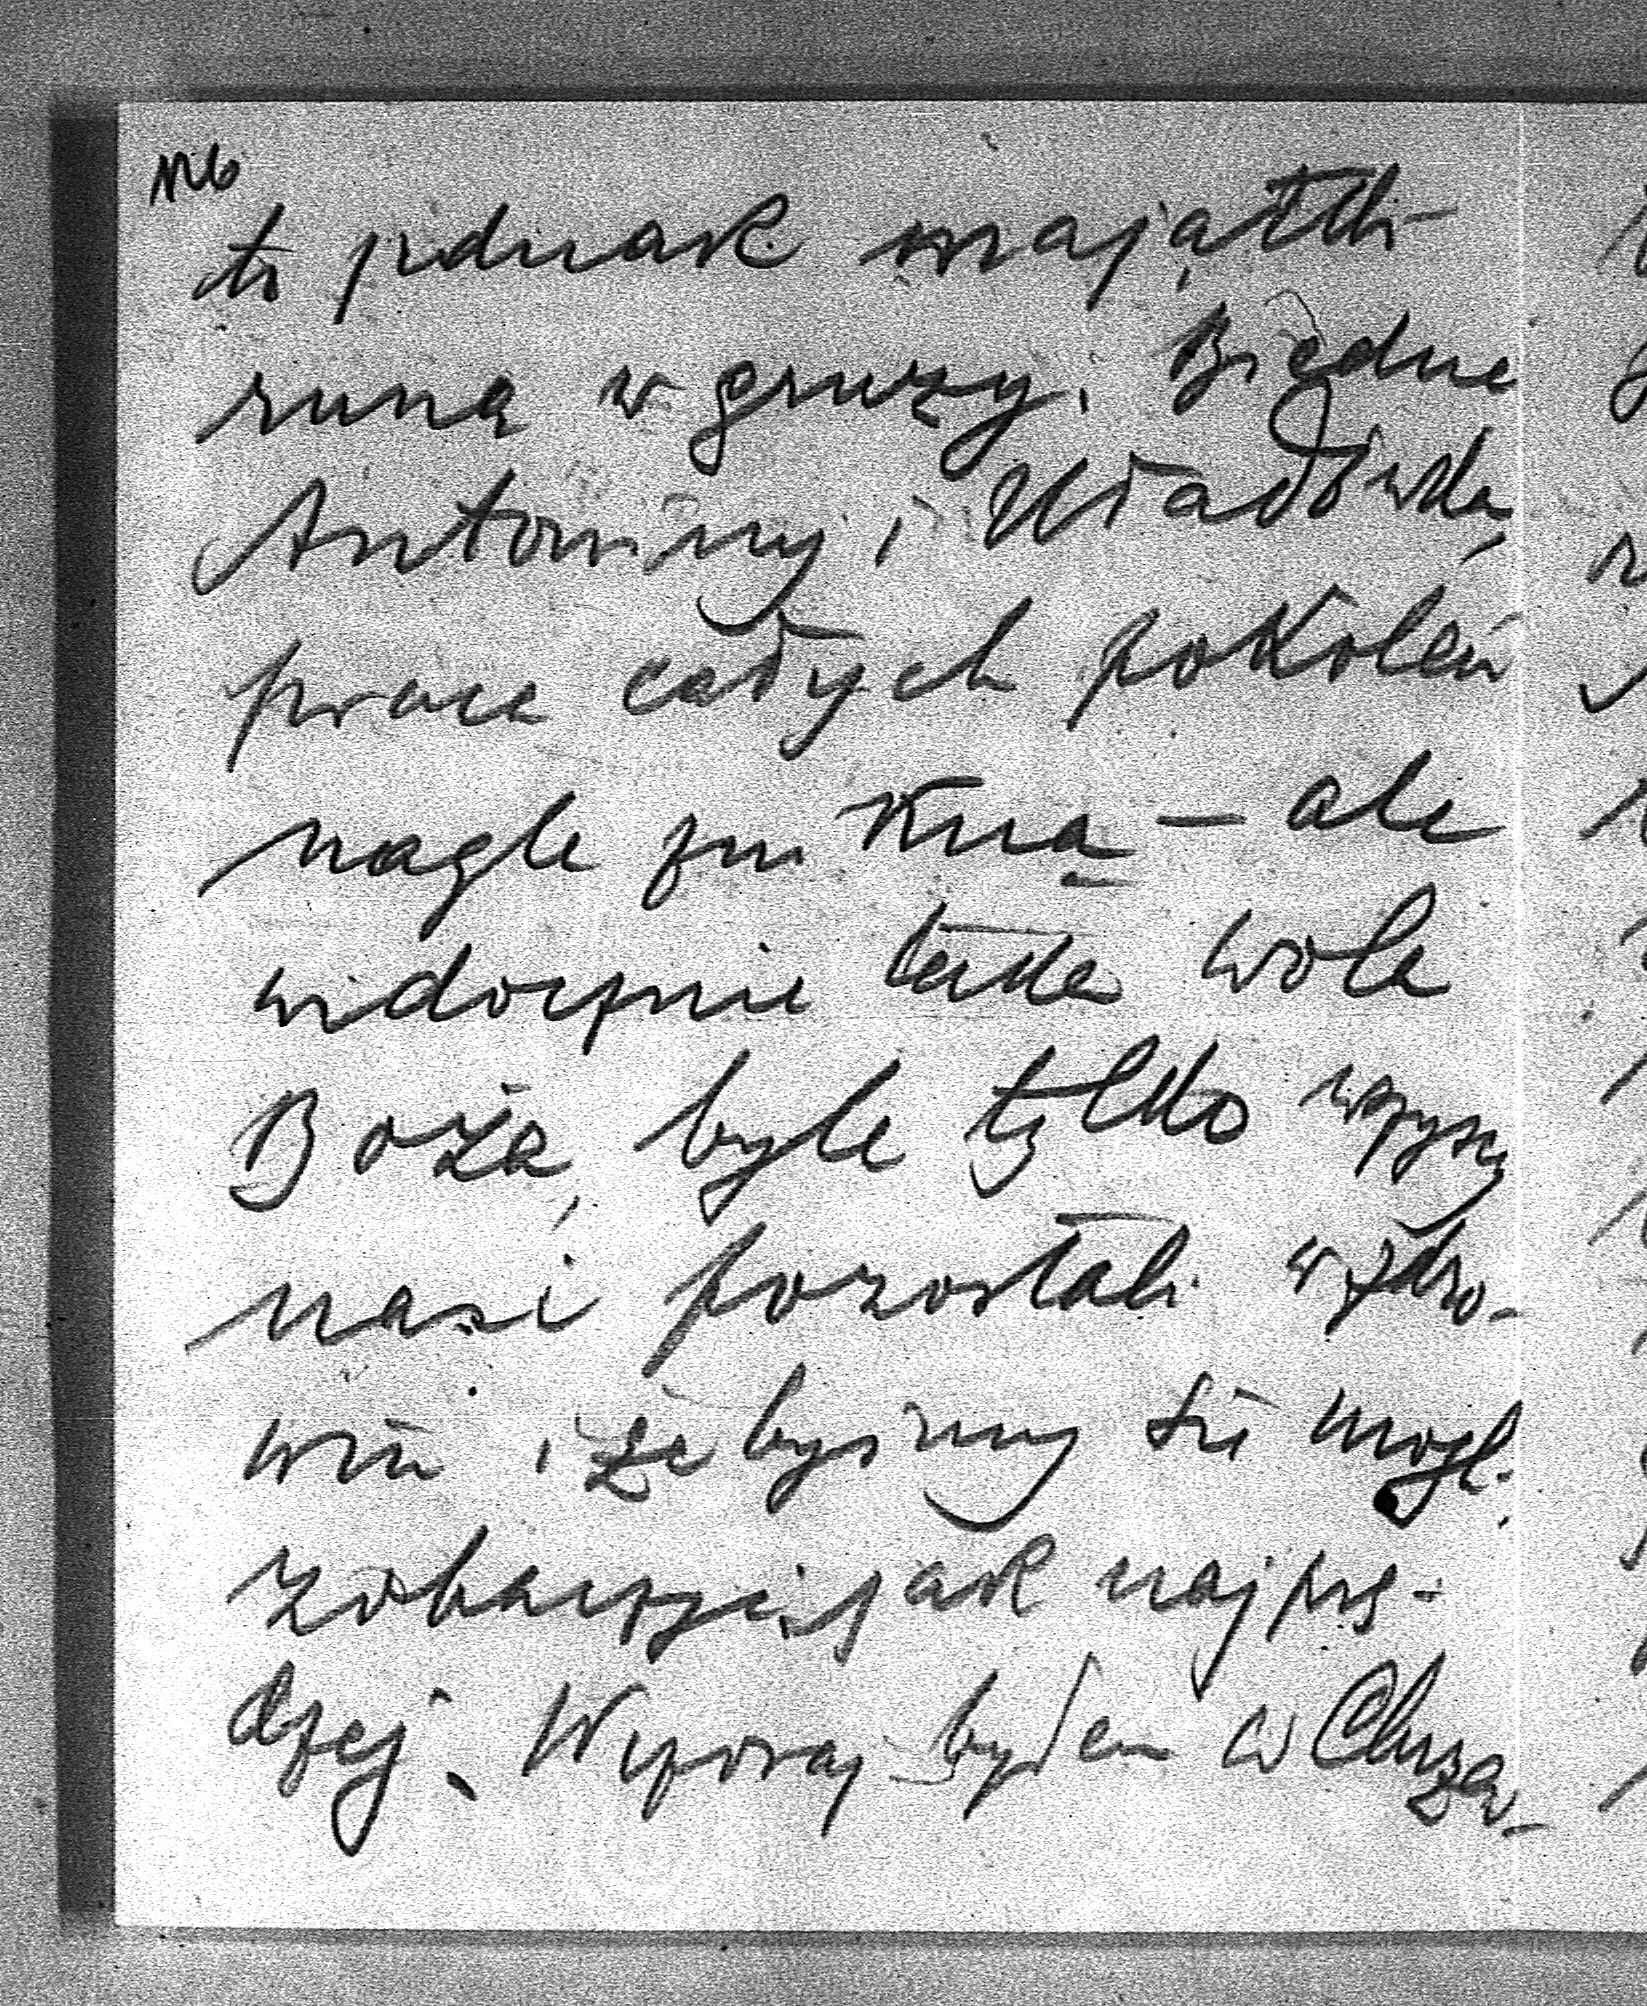 N16
to jednak majątki
runą w gruzy. Biedne
Antoniny i Uładówka,
prace całych pokoleń
nagle znikną — ale
widocznie taka wola
Boża, byle tylko wszyscy
nasi pozostali w zdro-
wiu i żebyśmy się mogli
zobaczyć jak najprę-
dzej. Wczoraj byłem w Chrza-